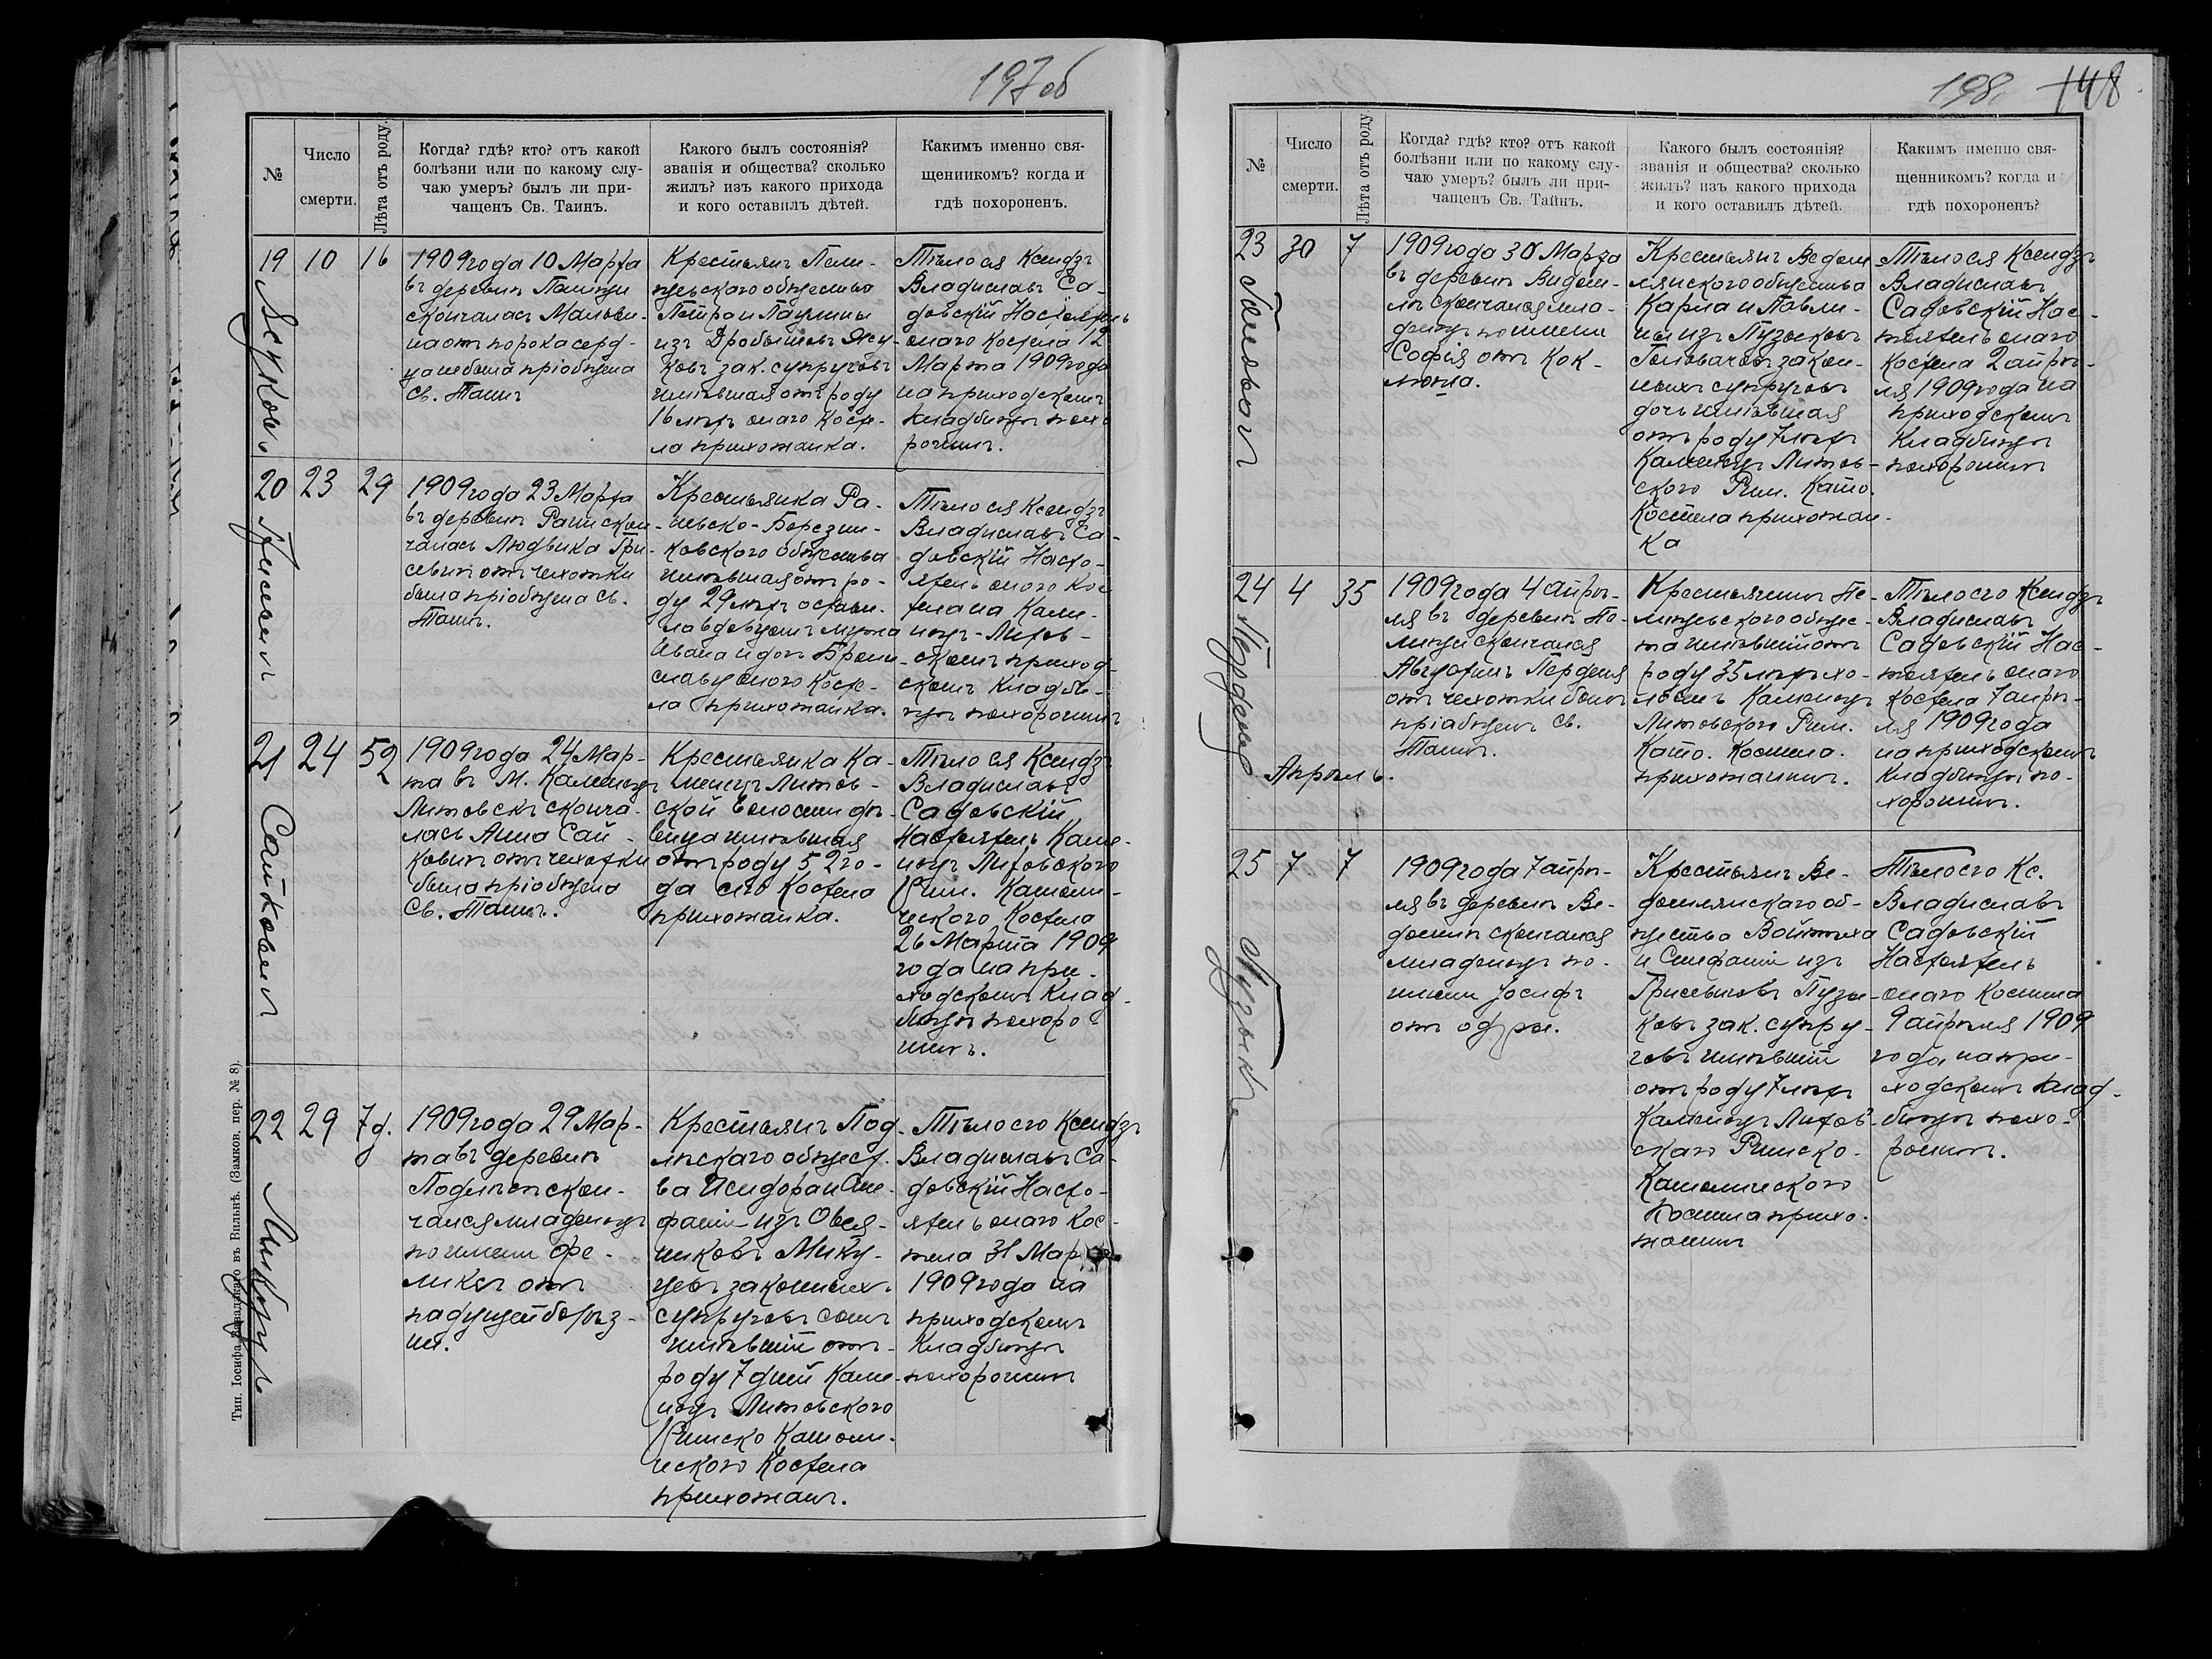 197об
№
Число
смерти.
Лѣта отъ роду.
Когда? гдѣ? кто? отъ какой
болѣзни или по какому слу-
чаю умеръ? былъ ли при-
чащенъ Св. Таинъ.
Какого былъ состоянія?
званія и общества? сколько
жилъ? изъ какого прихода
и кого оставилъ дѣтей.
Какимъ именно свя-
щенникомъ? когда и
гдѣ похороненъ.
19 10 16
1909 года 10 Марта
въ деревни
скончалась Мальви-
на отъ порока серд-
ца была пріобщена
Св. Таинъ
Крестьянъ Пели-
щенского общества
Петра и Паулины
изъ Дробышовъ Яцу-
ковъ зак. супруговъ
имѣвшая отъ роду
16 лѣтъ оного Косте-
ла прихожанка.
Тѣло ея Ксендзъ
Владиславъ Са-
довскій Настоятель
оного Костела 12
Марта 1909 года
на приходскомъ
кладбищѣ похо
ронилъ.
20 23 29
Грисевич
1909 года 23 Марта
въ деревни скон-
чалась Людвика Гри-
севич отъ чехотки
была пріобщена Св.
Таинъ.
Крестьянка Ра-
невско-Березин-
ковского общества
имѣвшая отъ ро-
ду 29 лѣтъ остави-
ла вдовцомъ мужа
Ивана и дочь Брони-
славу оного Косте-
ла прихожанка.
Тѣло ея Ксендзъ
Владиславъ Са-
довскій Насто-
ятель оного Кос
тела на Каме-
нецъ-Литов-
скомъ приход-
скомъ Кладби-
щѣ похоронилъ
21 24 52
Сайкович
1909 года 24 Мар-
та въ М. Каменецъ
Литовскъ сконча-
лась Анна Сай-
кович отъ чехотки
была пріобщена
Св. Таинъ.
Крестьянка Ка-
менецъ Литов-
ской волости дѣ-
вица имѣвшая
отъ роду 52 го-
да сего Костела
прихожанка.
Тѣло ея Ксендзъ
Владиславъ
Садовскій
Настоятель Каме-
нецъ Литовского
Рим. Католи-
ческого Костела
26 Марта 1909
года на при-
ходскомъ Клад-
бищѣ похоро-
нилъ.
22 29 7 д.
Микуць
1909 года 29 Мар-
та въ деревни
скон-
чался младенецъ
по имени Фе-
ликсъ отъ
падущей болѣз-
ни.
Крестьянъ Под-
лѣскаго общест-
ва Исидора и Сте-
фаніи изъ Овся-
никовъ Мику-
цевъ законныхъ
супруговъ сынъ
имѣвшій отъ
роду 7 дней Каме-
нецъ Литовского
Римско Католи-
ческого Костела
прихожанъ.
Тѣло его Ксендзъ
Владиславъ Са-
довскій Насто-
ятель оного Кос-
тела 31 Марта
1909 года на
приходскомъ
Кладбищѣ
похоронилъ
Тип. Іосифа Завадзкаго въ Вильнѣ. (Замков. пер. № 8).
198. 148
№
Число
смерти.
Лѣта отъ роду
Когда? гдѣ? кто? отъ какой
болѣзни или по какому слу-
чаю умеръ? былъ ли при-
чащенъ Св. Тайнъ.
Какого былъ состоянія?
званія и общества? сколько
жилъ? изъ какого прихода
и кого оставилъ дѣтей.
Какимъ именно свя-
щенникомъ? когда и
гдѣ похороненъ?
23 30 7
1909 года 30 Марта
въ деревни Видом-
лѣ скончался мла-
денецъ по имени
Софія отъ Кок-
люша.
Крестьянъ Ведом
лянского общества
Карла и Павли-
ны изъ Пузыковъ
законн-
ныхъ супруговъ
дочь имѣвшая
отъ роду 7 лѣтъ
Каменецъ Литов-
ского Рим. Като.
Костела прихожан-
ка
Тѣло ея Ксендзъ
Владиславъ
Садовскій Нас-
тоятель оного
Костела 2 апрѣ-
ля 1909 года на
приходскомъ
Кладбищѣ
похоронилъ
24 4 35
Апрѣль.
1909 года 4 апрѣ-
ля въ деревни Пе-
лищи скончался
Августинъ Пердень
отъ чехотки былъ
пріобщенъ Св.
Таинъ.
Крестьянинъ Пе-
лищенского общес-
тва имѣвшій отъ
роду 35 лѣтъ хо-
лостъ Каменецъ
Литовского Рим.
Като. Костела.
прихожанинъ.
Тѣло его Ксендзъ
Владиславъ
Садовскій Нас-
тоятель оного
Костела 7 апрѣ-
ля 1909 года
на приходскомъ
Кладбищѣ по-
хоронилъ.
25 7 7
Пузыкъ.
1909 года 7 апрѣ-
ля въ деревни Ве-
домли скончался
младенецъ по-
имени Іосифъ
отъ одры.
Крестьянъ Ве-
домлянскаго об-
щества Войтеха
и Стефаніи изъ
Грисевичовъ Пузы-
ковъ зак. супру-
говъ имѣвшій
отъ роду 7 лѣтъ
Каменецъ Литов-
скаго Римско-
Католического
Костела прихо-
жанинъ
Тѣло его Кс.
Владиславъ
Садовскій
Настоятель
оного Костела
9 апрѣля 1909
года на при-
ходскомъ клад-
бищѣ похо-
ронилъ.